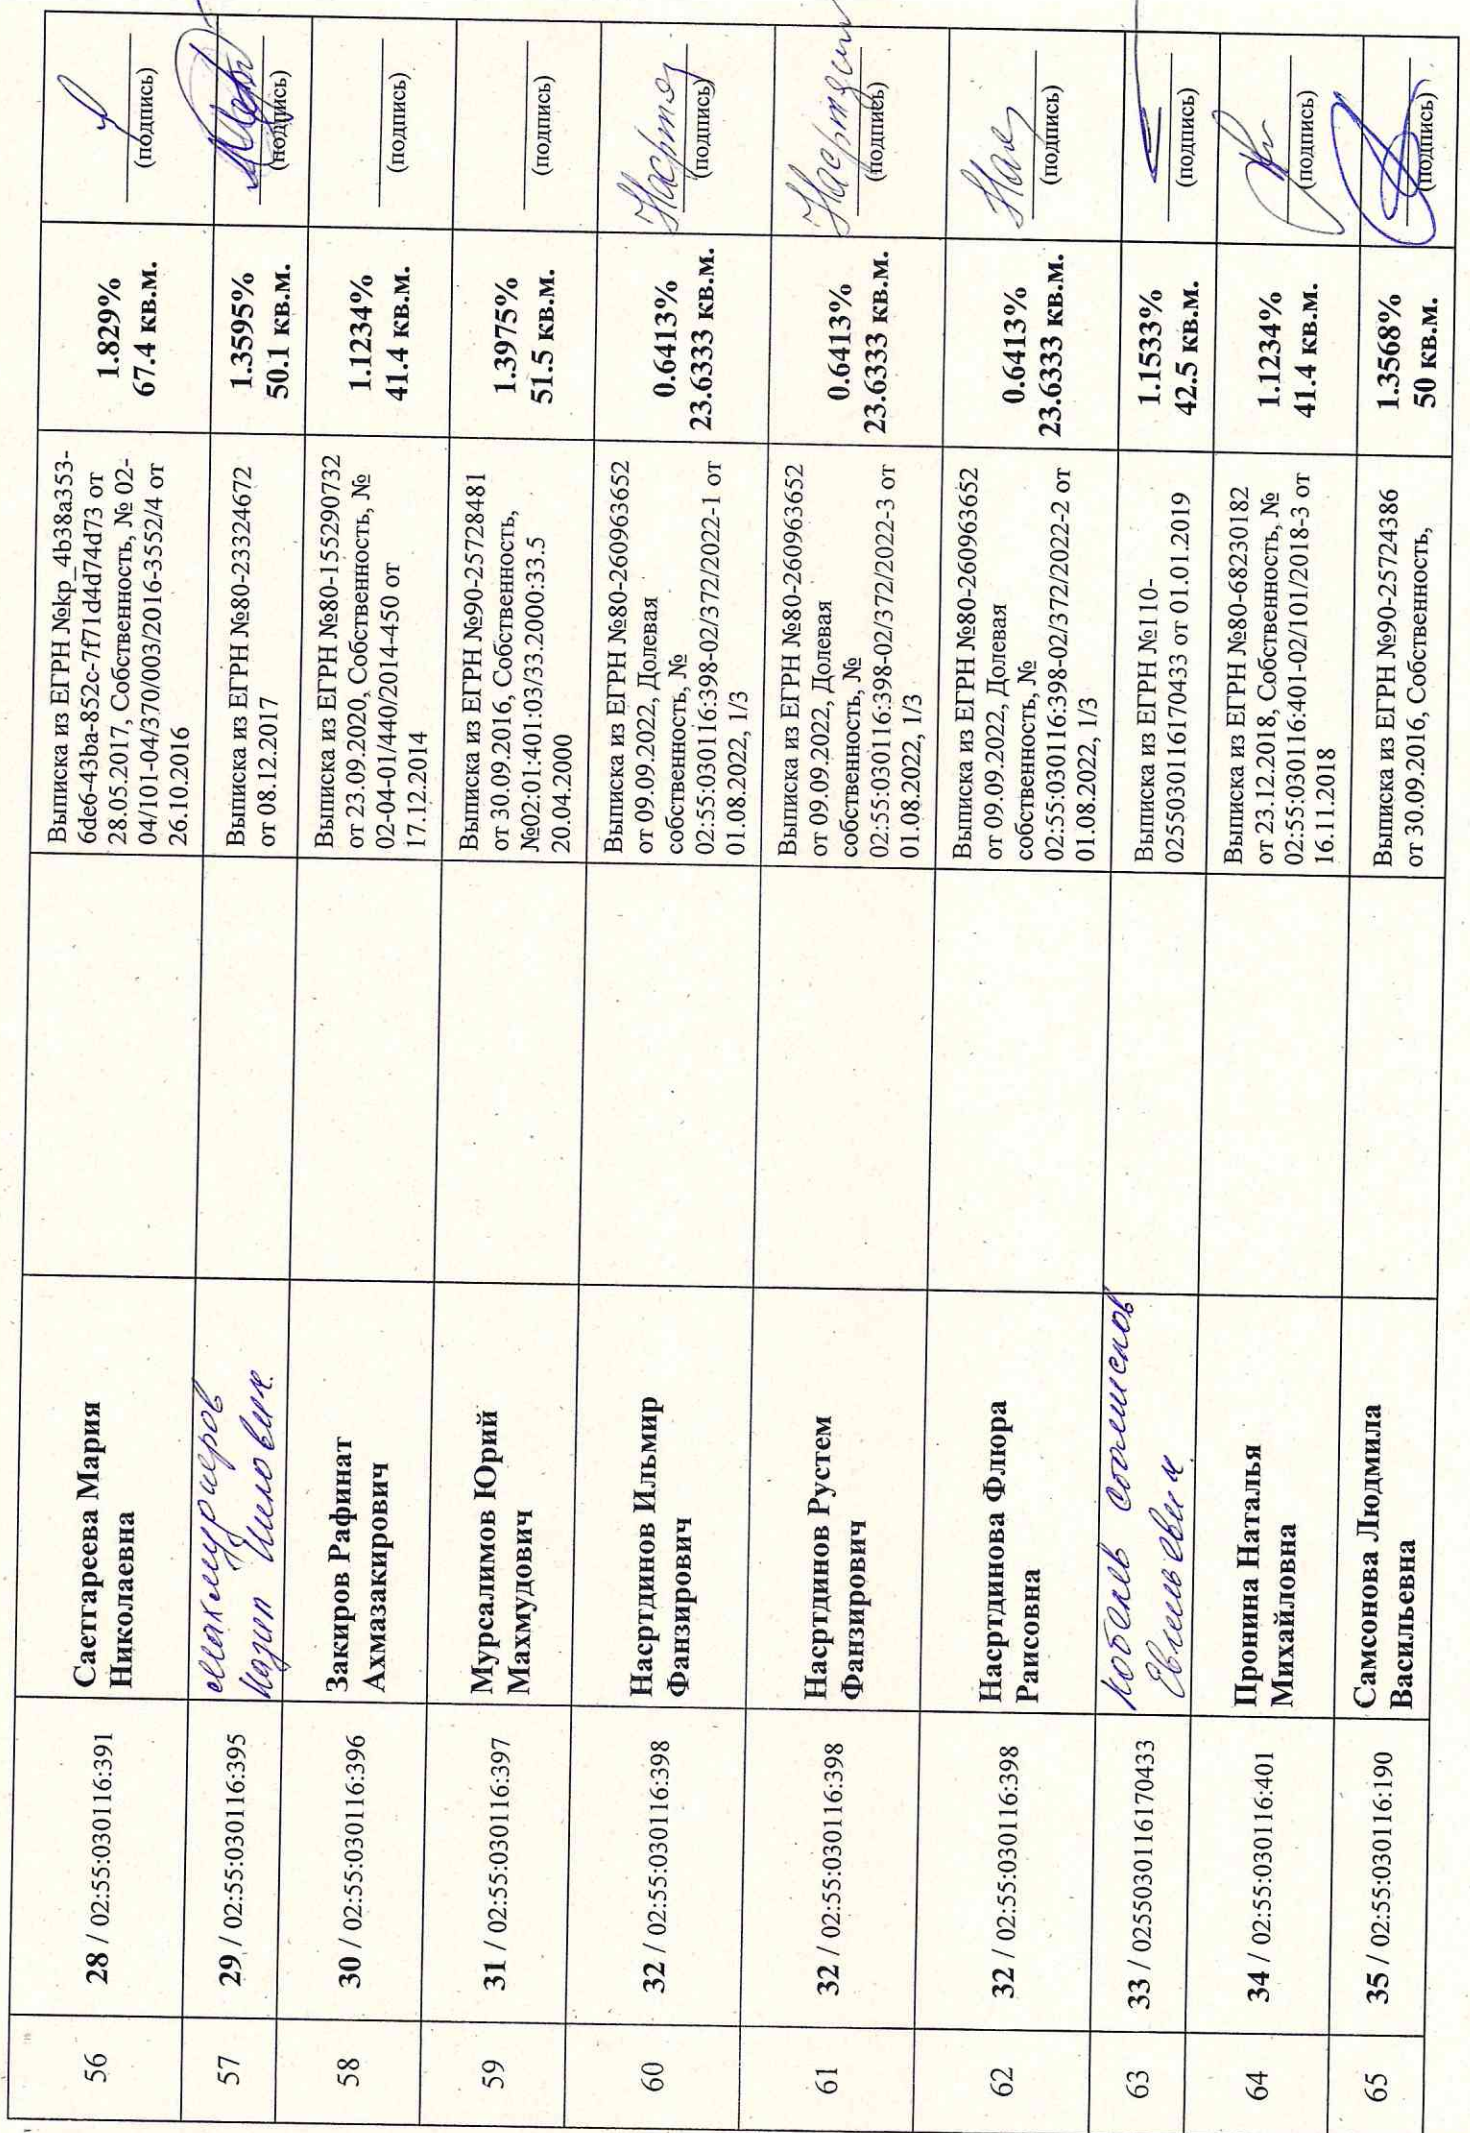 56
28 / 02:55:030116:391
Саетгареева Мария
Николаевна
Выписка из ЕГРН №kp_4b38a353-
6de6-43ba-852c-7f71d4d74d73 от
28.05.2017, Собственность, № 02-
04/101-04/370/003/2016-3552/4 от
26.10.2016
1.829%
67.4 кв.м.
(подпись)
57
29 / 02:55:030116:395
Выписка из ЕГРН №80-23324672
от 08.12.2017
1.3595%
50.1 кв.м.
(подпись)
58
30 / 02:55:030116:396
Закиров Рафинат
Ахмазакирович
Выписка из ЕГРН №80-155290732
от 23.09.2020, Собственность, №
02-04-01/440/2014-450 от
17.12.2014
1.1234%
41.4 кв.м.
(подпись)
59
31 / 02:55:030116:397
Мурсалимов Юрий
Махмудович
Выписка из ЕГРН №90-25728481
от 30.09.2016, Собственность,
№02:01:401:03/33.2000:33.5
20.04.2000
1.3975%
51.5 кв.м.
(подпись)
60
32 / 02:55:030116:398
Насртдинов Ильмир
Фанзирович
Выписка из ЕГРН №80-260963652
от 09.09.2022, Долевая
собственность, №
02:55:030116:398-02/372/2022-1 от
01.08.2022, 1/3
0.6413%
23.6333 кв.м.
(подпись)
61
32 / 02:55:030116:398
Насртдинов Рустем
Фанзирович
Выписка из ЕГРН №80-260963652
от 09.09.2022, Долевая
собственность, №
02:55:030116:398-02/372/2022-3 от
01.08.2022, 1/3
0.6413%
23.6333 кв.м.
(подпись)
62
32 / 02:55:030116:398
Насртдинова Флюра
Раисовна
Выписка из ЕГРН №80-260963652
от 09.09.2022, Долевая
собственность, №
02:55:030116:398-02/372/2022-2 от
01.08.2022, 1/3
0.6413%
23.6333 кв.м.
(подпись)
63
33 / 02550301161​70433
Кобелев
Евгеньевич
Выписка из ЕГРН №110-
0255030116170433 от 01.01.2019
1.1533%
42.5 кв.м.
(подпись)
64
34 / 02:55:030116:401
Пронина Наталья
Михайловна
Выписка из ЕГРН №80-68230182
от 23.12.2018, Собственность, №
02:55:030116:401-02/101/2018-3 от
16.11.2018
1.1234%
41.4 кв.м.
(подпись)
65
35 / 02:55:030116:190
Самсонова Людмила
Васильевна
Выписка из ЕГРН №90-25724386
от 30.09.2016, Собственность,
1.3568%
50 кв.м.
(подпись)